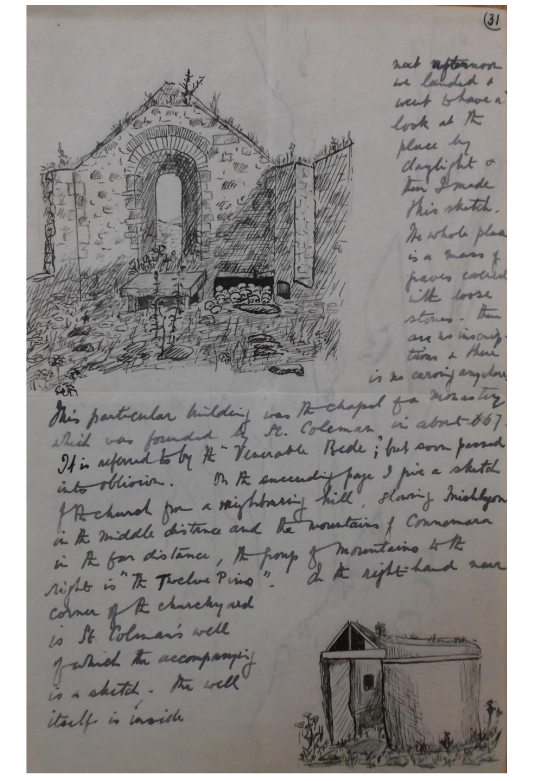 (31)
next afternoon
we landed &
went to have a
look at the
place by
daylight &
then I made
this sketch.
The whole place
is a mass of
graves covered
with loose
stones. There
are no inscrip-
tions & there
is no carving anywhere
This particular building was the chapel of a monastery
which was founded by St. Coleman in about 667.
It is referred to by the "Venerable Bede"; but soon passed
into oblivion. On the succeeding page I give a sketch
of the church from a neighbouring hill, showing Inishlyon
in the middle distance and the mountains of Connemara
in the far distance, the group of mountains to the
right is "the Twelve Pins". In the right-hand near
corner of the churchyard
is St. Colman's well
of which the accompanying
is a sketch. The well
itself is inside